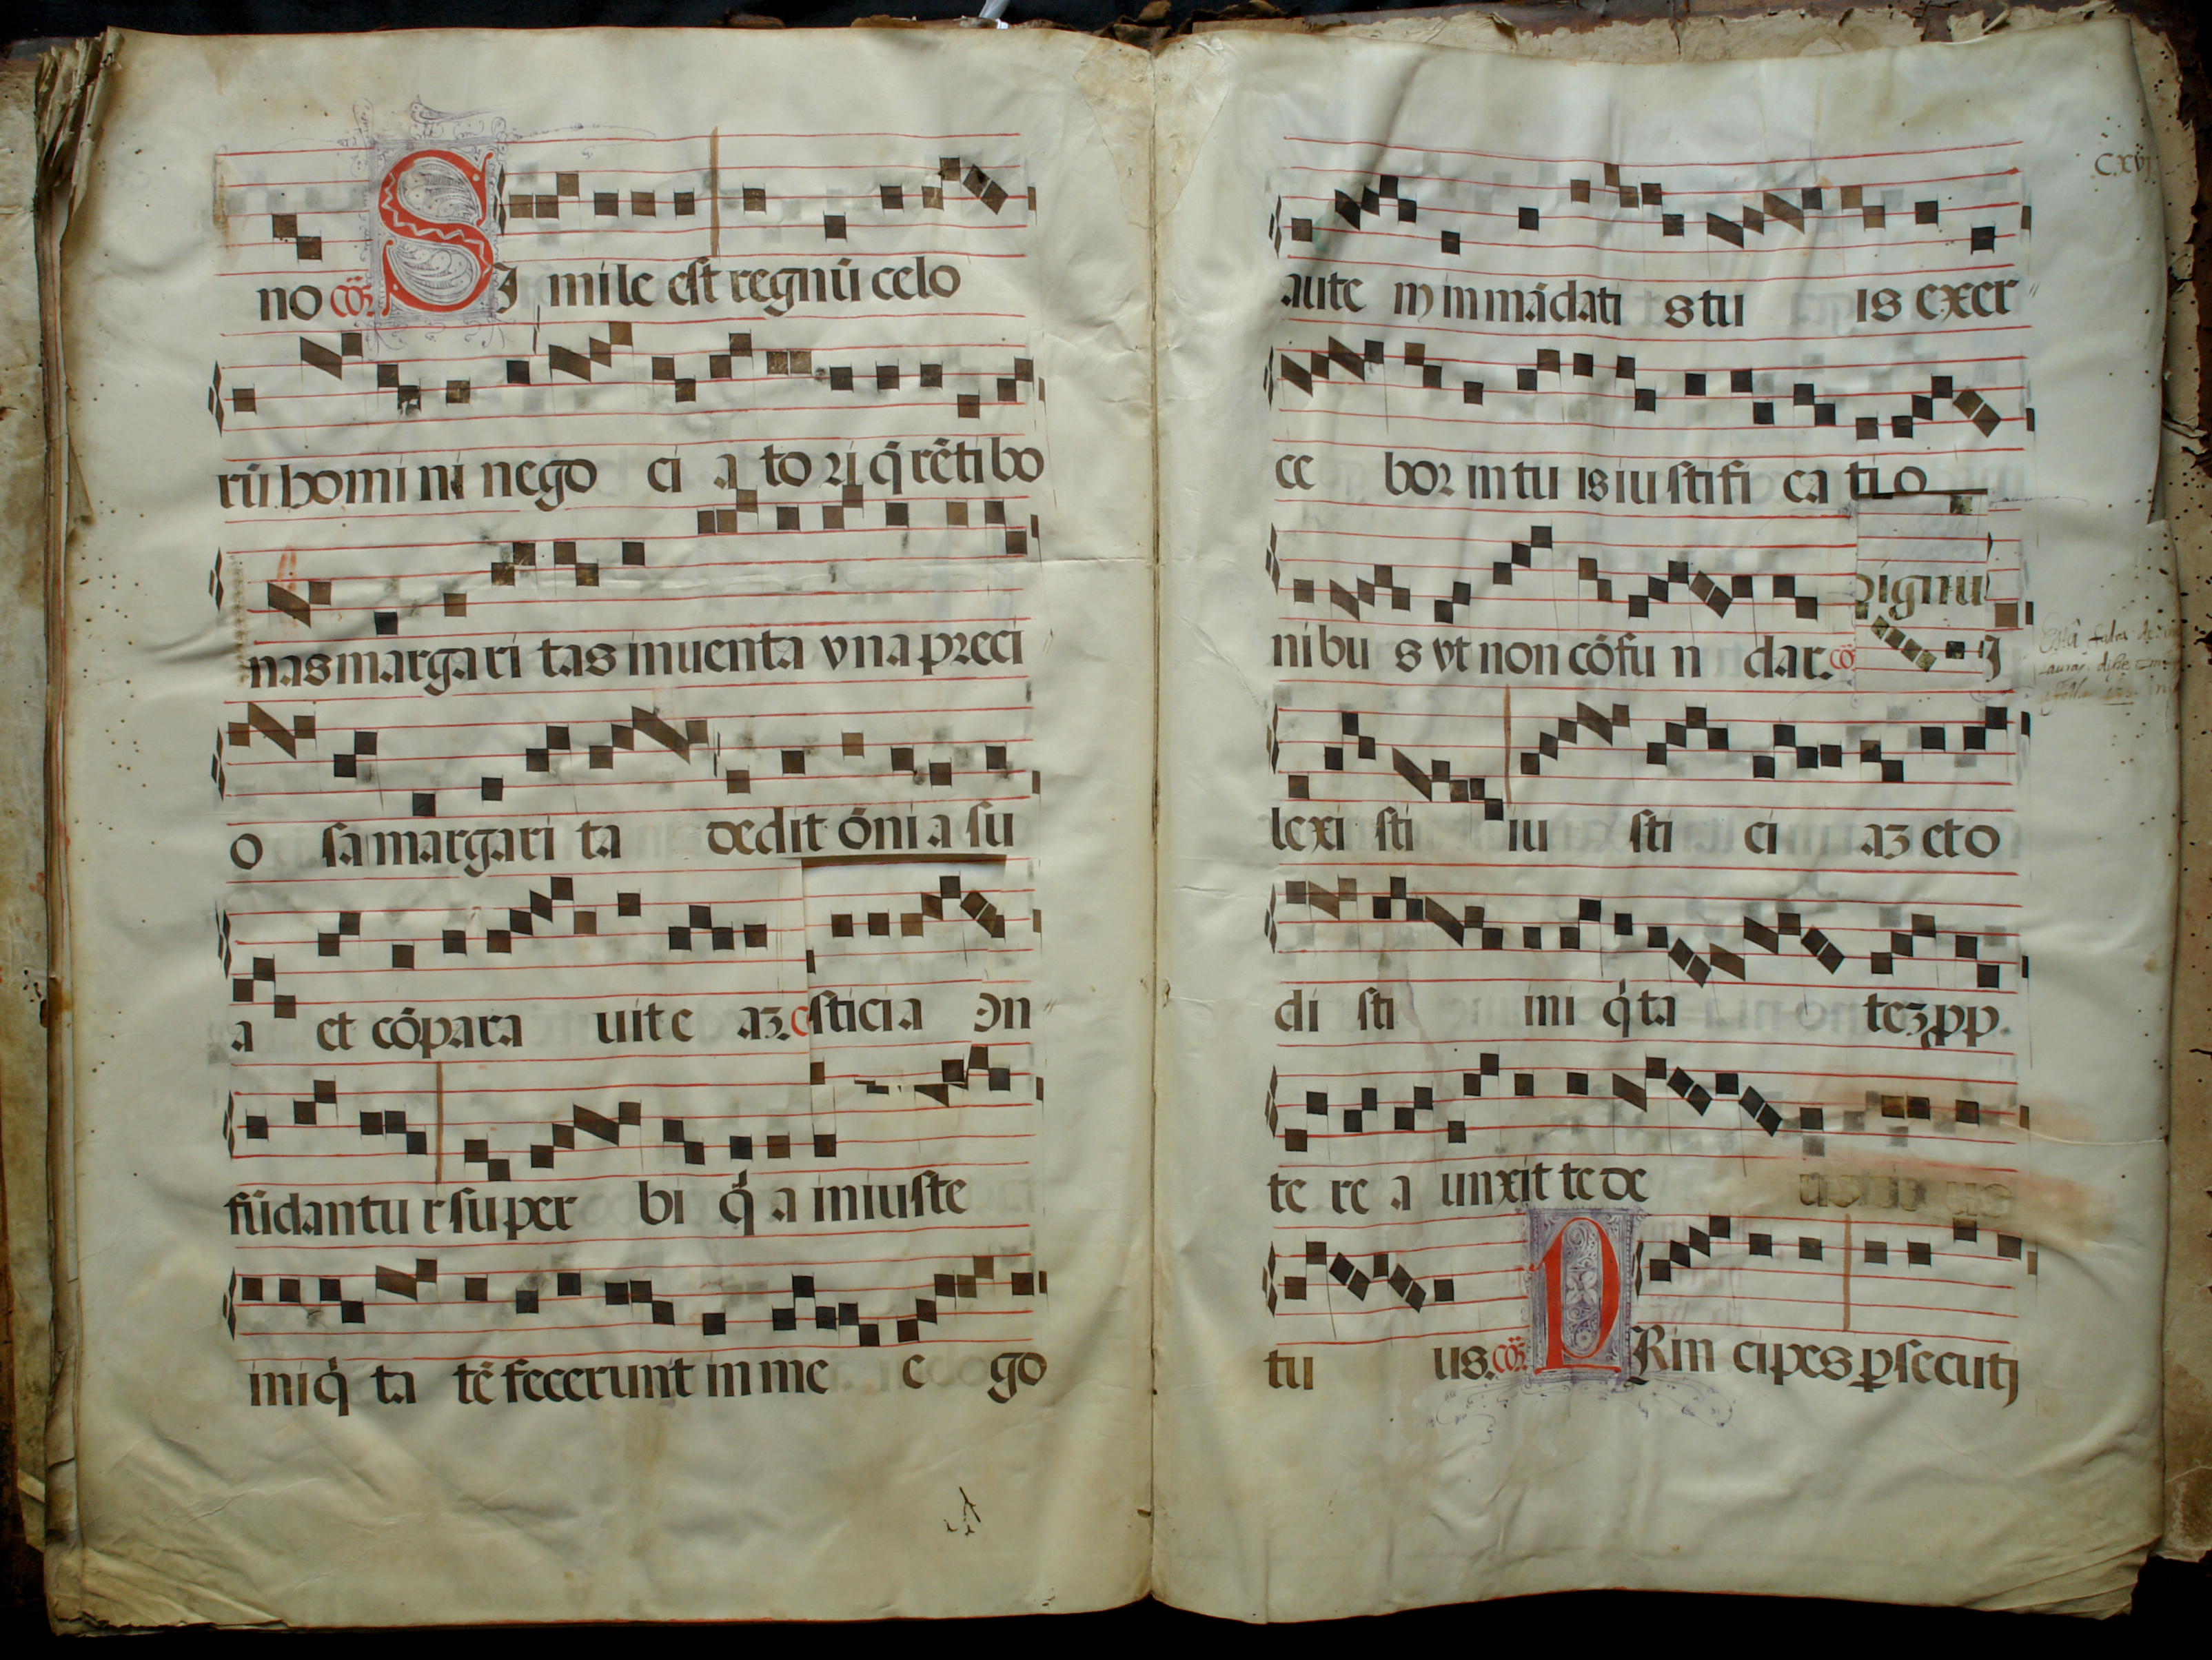 no cōr SI mile est regnū celo
rū homi ni nego ci a to ri q̄ rēti bo
nas margari tas inuenta vna preci
o sa margari ta dedit ōni a su
a et cōpara uit e aʒ. c sticia on
fūdantu r super bi q̇ a iniuste
iniq̇ ta tē fecerunt in me e go
C.xvj
aute m in mādati s tu is exer
ce bor in tu is iu stifi ca ti o
ni bu s vt non cōfu n dar. cō
pignu
I
lexi sti iu sti ci aʒ et o
di sti ini q̇ta teʒ pp.
te re a unxit te de
tu us. cōr PRin cipes ꝑsecutj